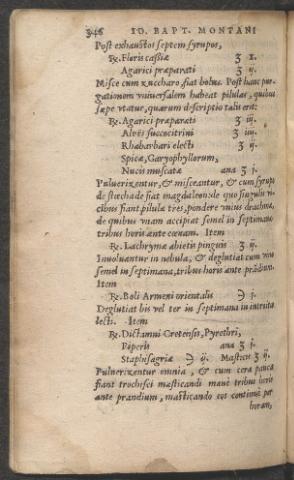 346 IO. BAPT. MONTANI
Post exhaustos septem syrupos,
℞. Floris cassiæ ʒ x.
Agarici præparati ʒ ij.
Misce cum zuccharo fiat bolus. Post hanc pur-
gationem vniuersalem habeat pilulas, quibus
sæpe vtatur, quarum descriptio talis erit:
℞. Agarici præparati ʒ iij.
Aloës succocitrini ʒ iiij.
Rhabarbari electi ʒ ij.
Spicæ, Garyophyllorum,
Nucis muscatæ ana ʒ j.
Puluerizentur, & misceantur, & cum syrupo
de stœchade fiat magdaleon: de quo singulis vi-
cibus fiant pilulæ tres, pondere vnius drachmæ,
de quibus vnam accipiat semel in septimana
tribus horis ante cœnam. Item
℞. Lachrymæ abietis pinguis ʒ ij.
Inuoluantur in nebula, & deglutiat cum vino
semel in septimana, tribus horis ante prãdium.
Item
℞. Boli Armeni orientalis ℈ j.
Deglutiat bis vel ter in septimana in introitu
lecti. Item
℞. Dictamni Cretensis, Pyrethri,
Piperis ana ʒ j.
Staphisagriæ ℈ ij. Mastices ʒ ij.
Puluerizentur omnia, & cum cera pauca
fiant trochisci masticandi manè tribus horis
ante prandium, masticando eos continuè per
horam,